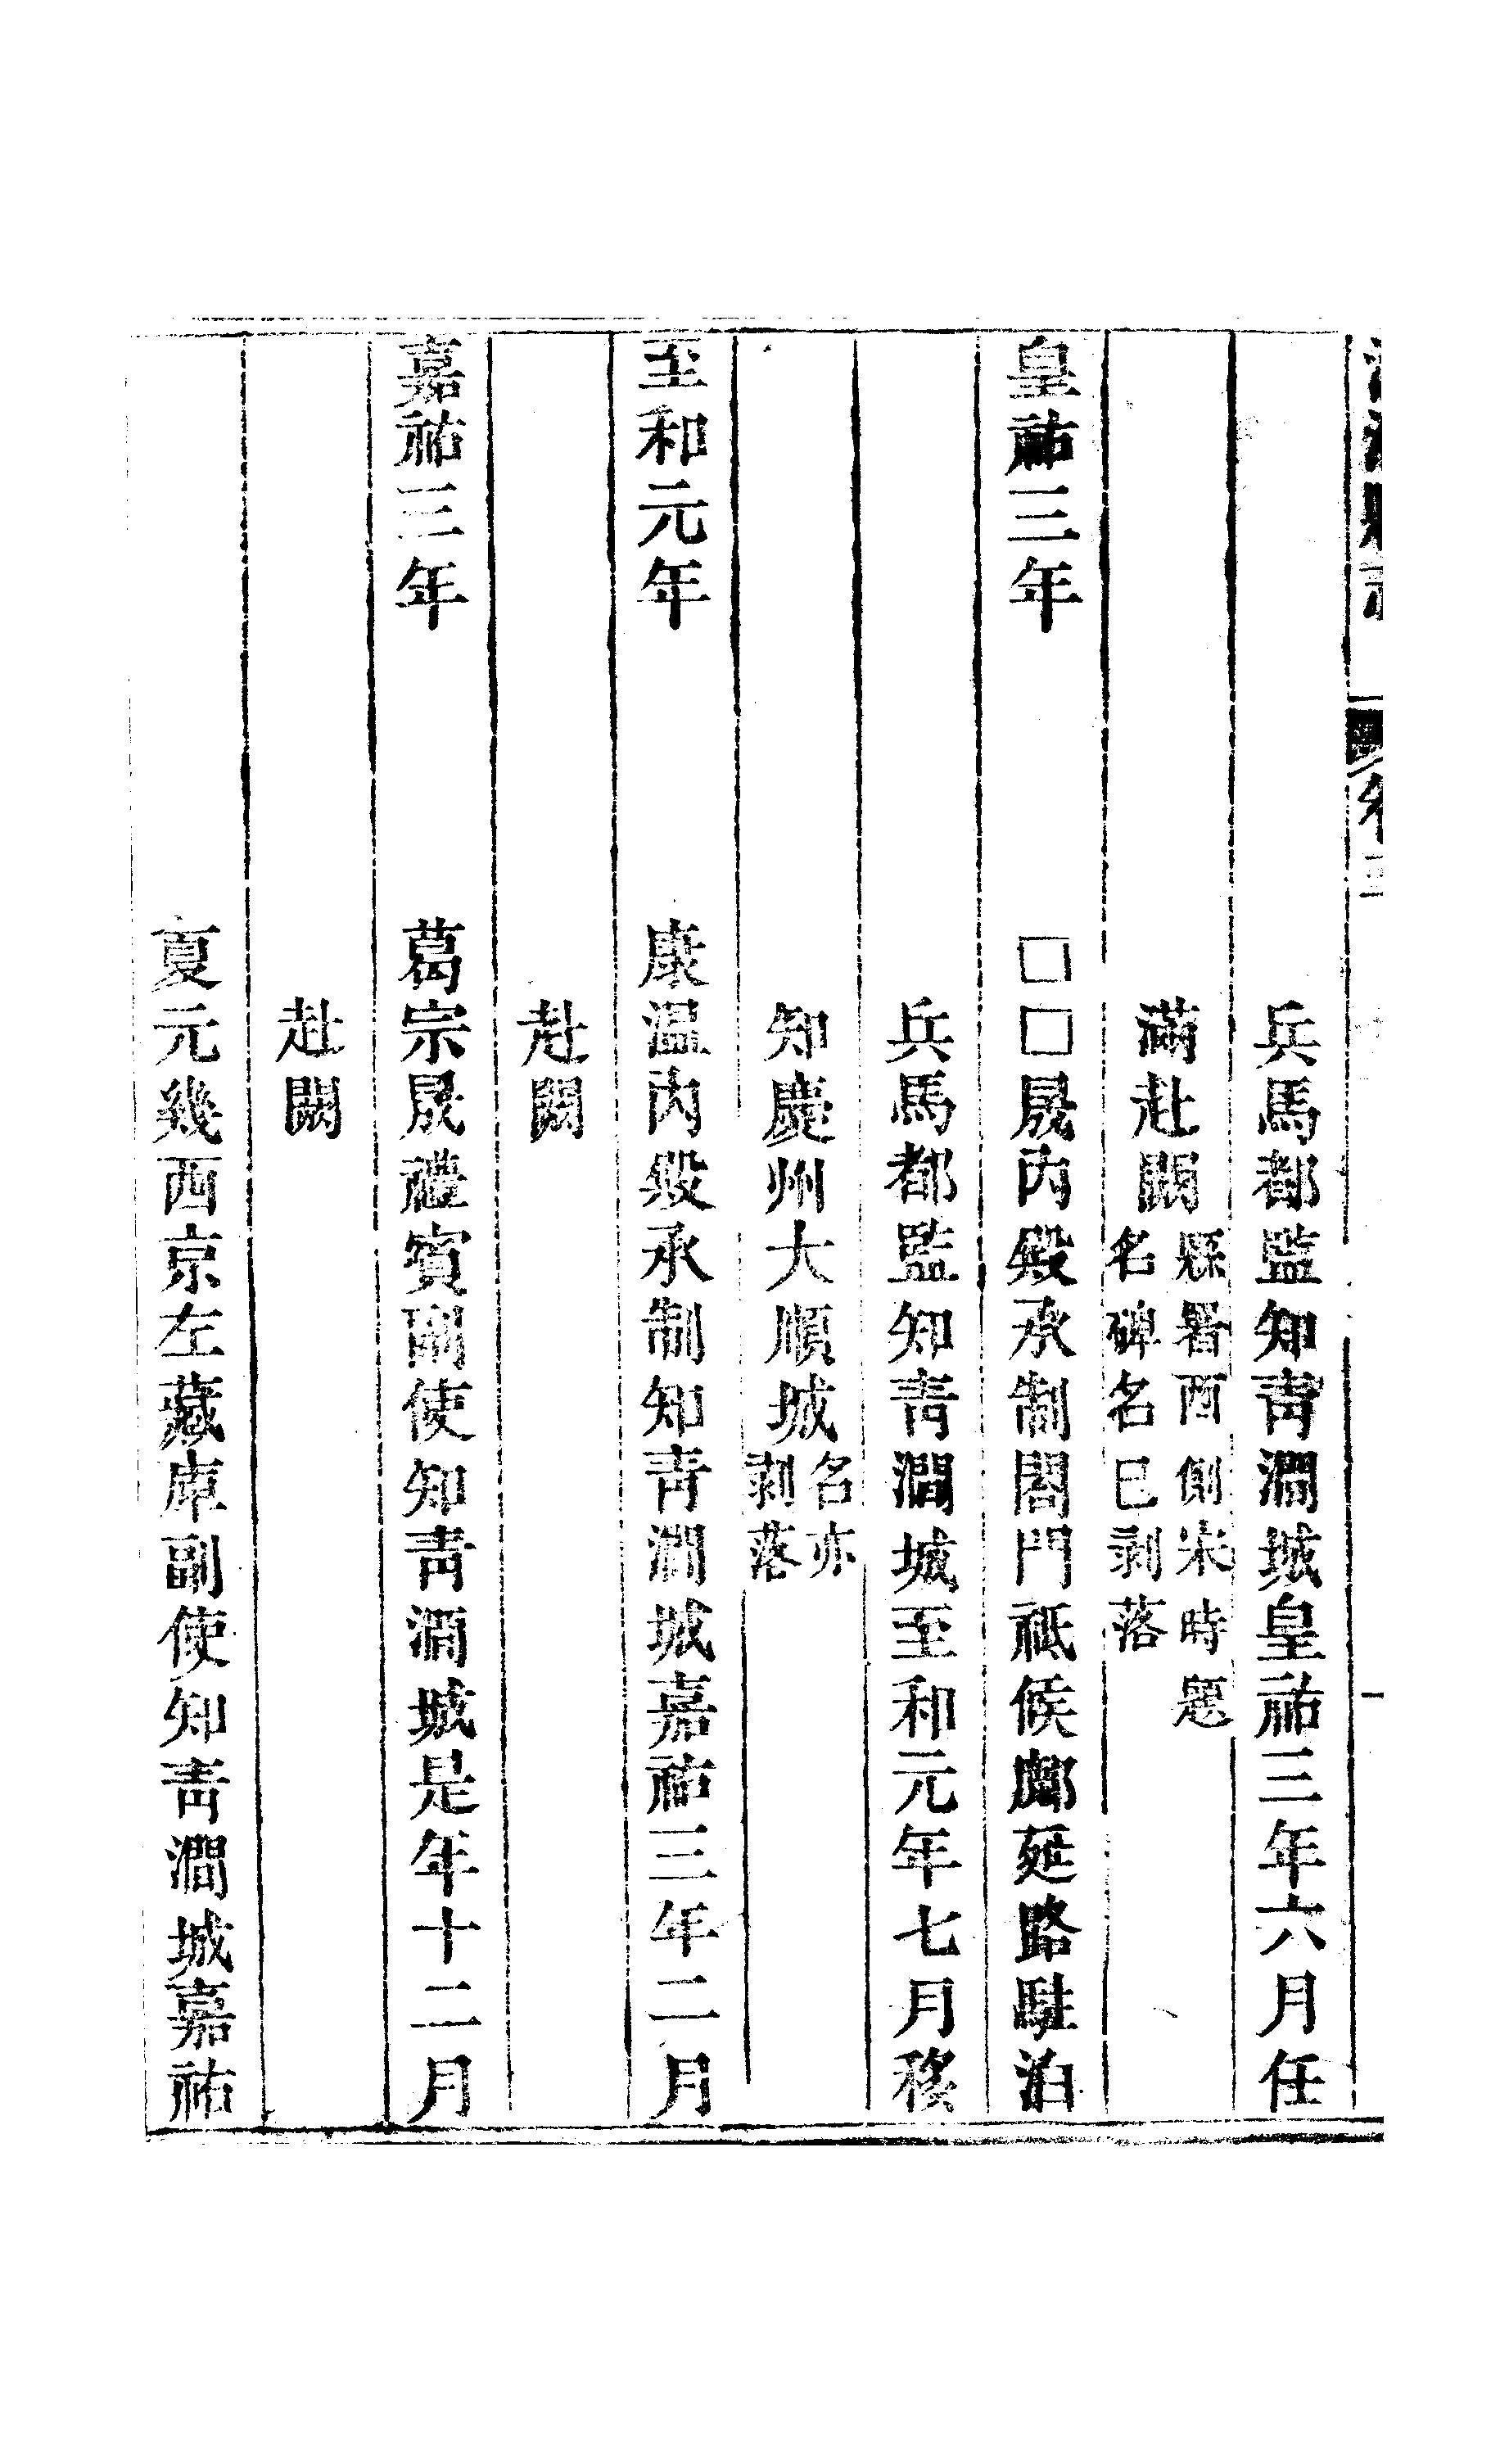 兵馬都監知靑澗城皇祐三年六月任
滿赴闕縣署西側宋時題名碑名已剥落
皇祐三年　□□晟内殿承制閤門祗候鄜延路駐泊
兵馬都監知靑澗城至和元年七月移
知慶州大順城名亦剥落
至和元年　康温内殿承制知靑澗城嘉祐三年二月
赴闕
嘉祐三年　葛宗晟禮賓副使知靑澗城是年十二月
赴闕
夏元幾西京左藏庫副使知靑澗城嘉祐